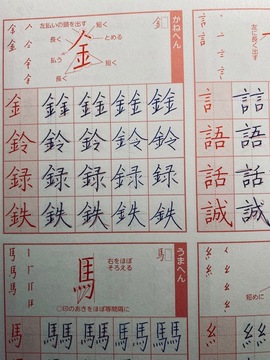 かねへん
左払いの頭を出す
短く
長く
とめる
払う
短く
長く
金
金 金金 金金 金金
鈴 鈴 鈴 鈴 鈴
録 録 録 録 録
鉄 鉄 鉄 鉄 鉄
左に長く出す
言 言
語 語
話 話
誠 誠
うまへん
右をほぼそろえる
馬
○印のあきをほぼ等間隔に
馬 馬馬 馬馬 馬馬
短めに
糸 糸